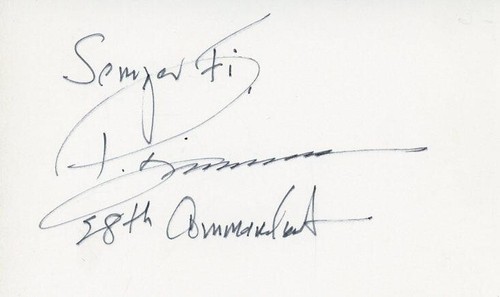 Semper Fi,
28th Commandant